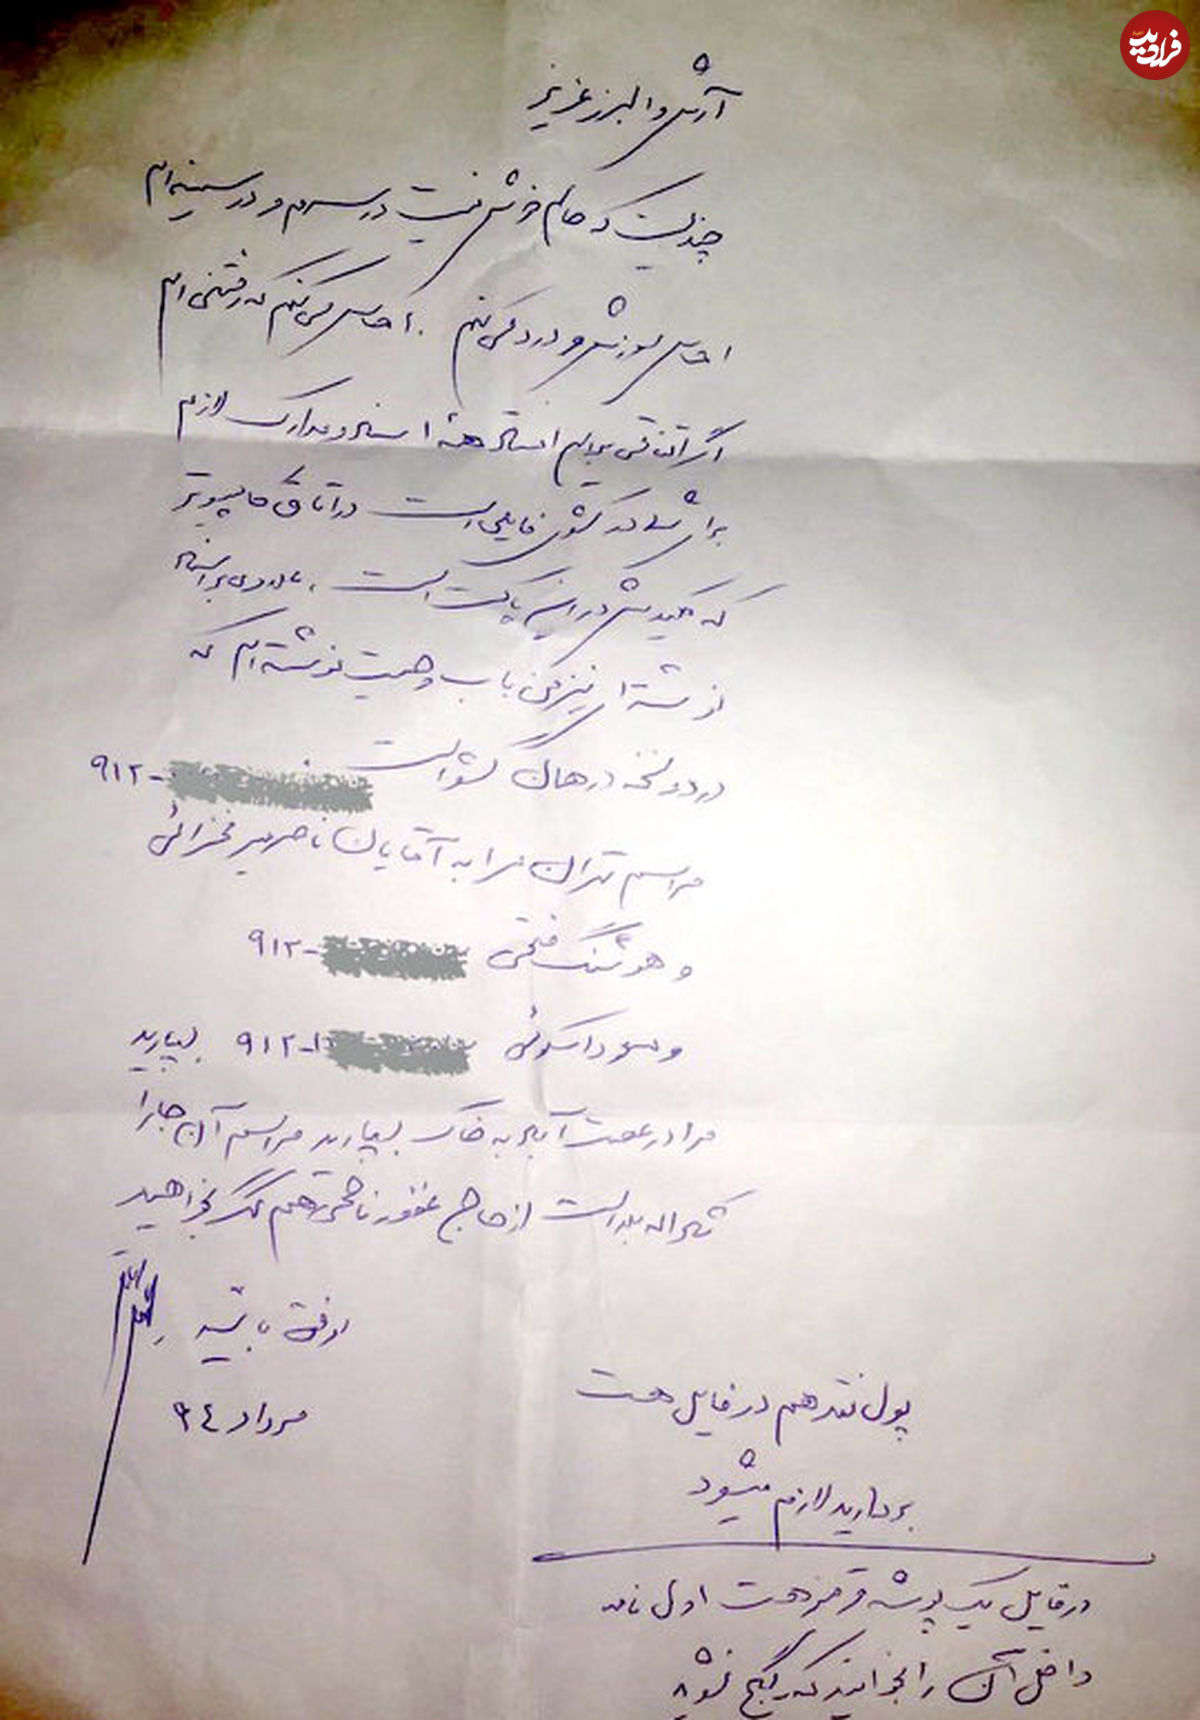 فرادید
آرش و البرز عزیز
چندیست که حالم خوش نیست در سرم و در سینه‌ام
احساس سوزش و درد می‌کنم . احساس می‌کنم که رفتنی‌ام
اگر اتفاقی برایم افتاد همهٔ اسناد و مدارک لازم
برای شما در کشوی فایلی است در اتاق کامپیوتر
که کلیدش در این پاکت است .
نوشته‌ای نیز من باب وصیت نوشته‌ام که
در دو نسخه در همان کشو است ۹۱۲-
مراسم تهران مرا به آقایان ناصر میرفخرائی
و هوشنگ فتحی ۹۱۲-
و مسعود اسکوئی ۹۱۲-۱ بسپارید
مرا در عصمت آباد به خاک بسپارید مراسم آن جا را
شکراله بلد است از حاج غفور ناطمی هم کمک بخواهید
موفق باشید
مرداد ۹۴
پول نقد هم در فایل هست
بردارید لازم میشود
در فایل یک پوشه قرمز هست اول نامه
داخل آن را بخوانید که گیج نشوید